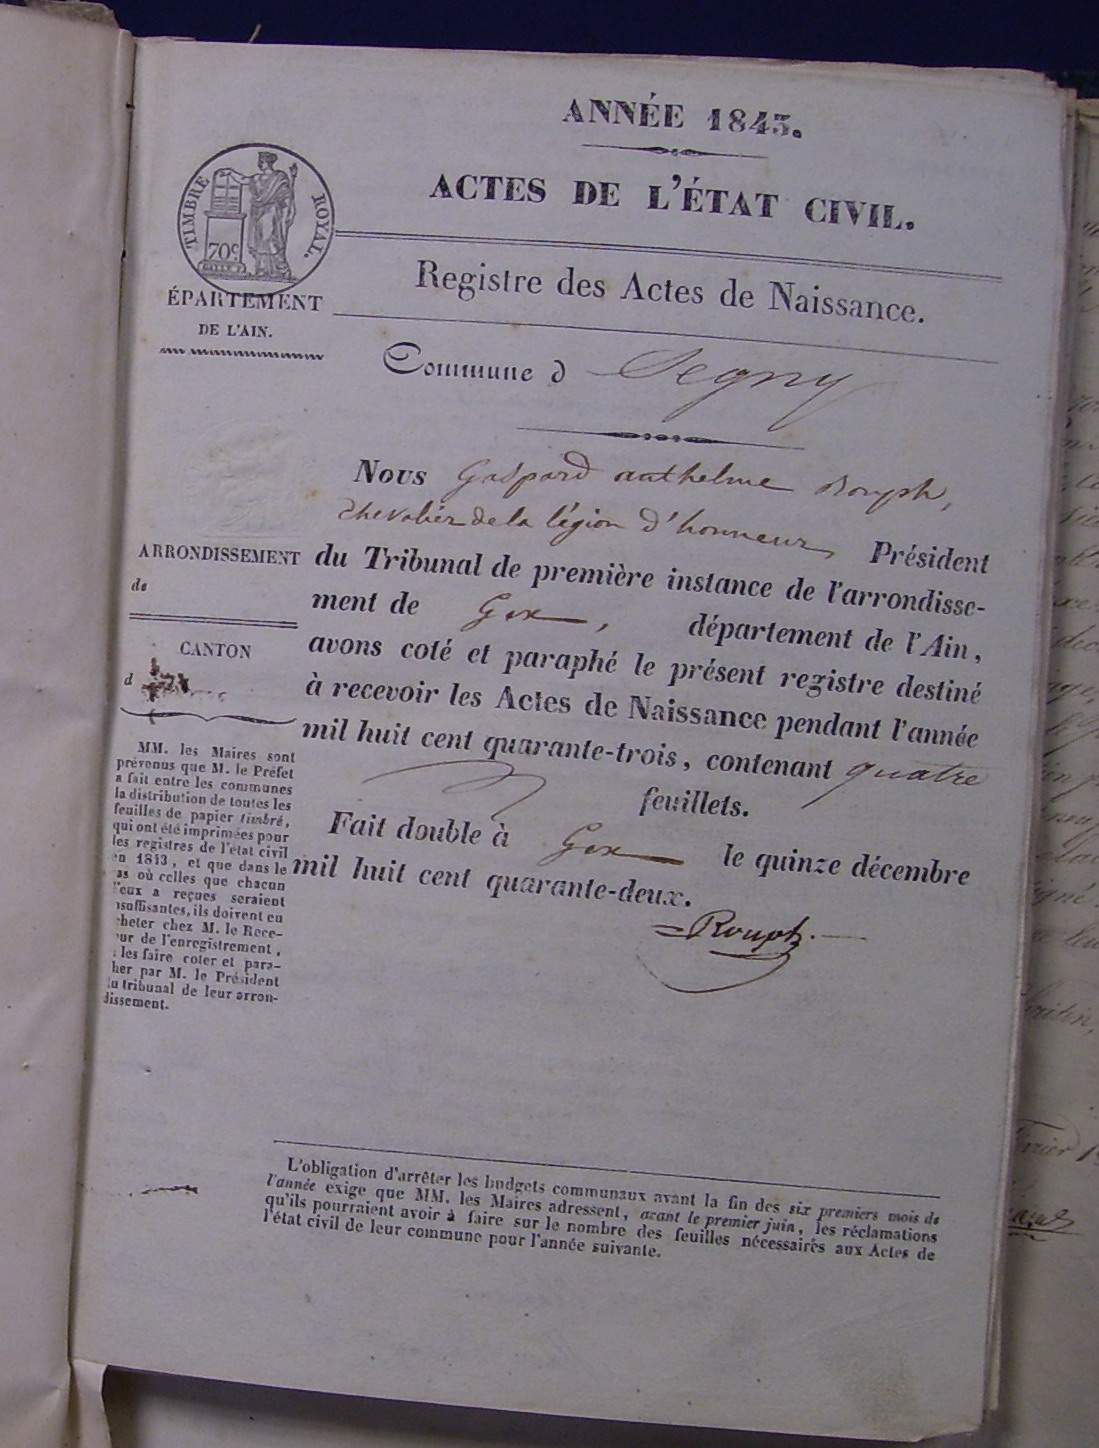 ANNÉE 1843.
ACTES DE L'ÉTAT CIVIL.
TIMBRE ROYAL.
70c
ÉPARTEMENT
DE L'AIN.
Registre des Actes de Naissance.
Commune d Segny
Nous Gaspard anthelme Rouph,
chevalier de la légion d'honneur, Président
du Tribunal de première instance de l'arrondisse-
ment de Gex, département de l'Ain,
avons coté et paraphé le présent registre destiné
à recevoir les Actes de Naissance pendant l'année
mil huit cent quarante-trois, contenant quatre
feuillets.
Fait double à Gex le quinze décembre
mil huit cent quarante-deux.
Rouph
ARRONDISSEMENT
de
CANTON
d
MM. les Maires sont
prévenus que M. le Préfet
a fait entre les communes
la distribution de toutes les
feuilles de papier timbré,
qui ont été imprimées pour
les registres de l'état civil
en 1843, et que dans le
as où celles que chacun
'eux a reçues seraient
nsuffisantes, ils doivent en
cheter chez M. le Rece-
ur de l'enregistrement,
les faire coter et para-
her par M. le Président
u tribunal de leur arron-
dissement.
L'obligation d'arrêter les budgets communaux avant la fin des six premiers mois de
l'année exige que MM. les Maires adressent, avant le premier juin, les réclamations
qu'ils pourraient avoir à faire sur le nombre des feuilles nécessaires aux Actes de
l'état civil de leur commune pour l'année suivante.